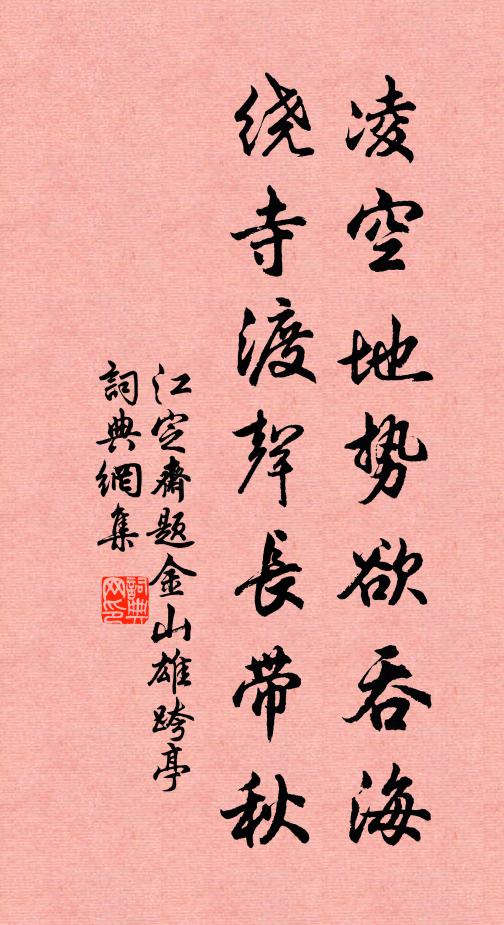 凌空地势欲吞海
绕寺渡聲長带秋
江定齋题金山雄跨亭
詞典網集
詞典网印